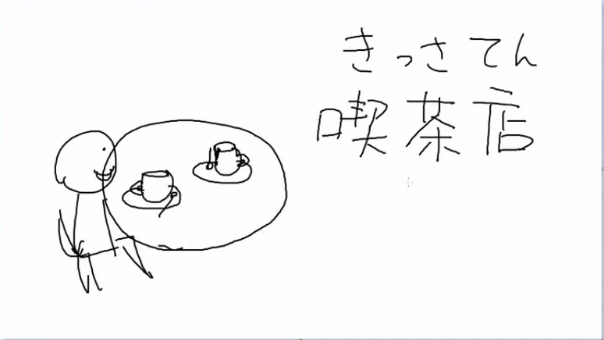 きっさてん
喫茶店